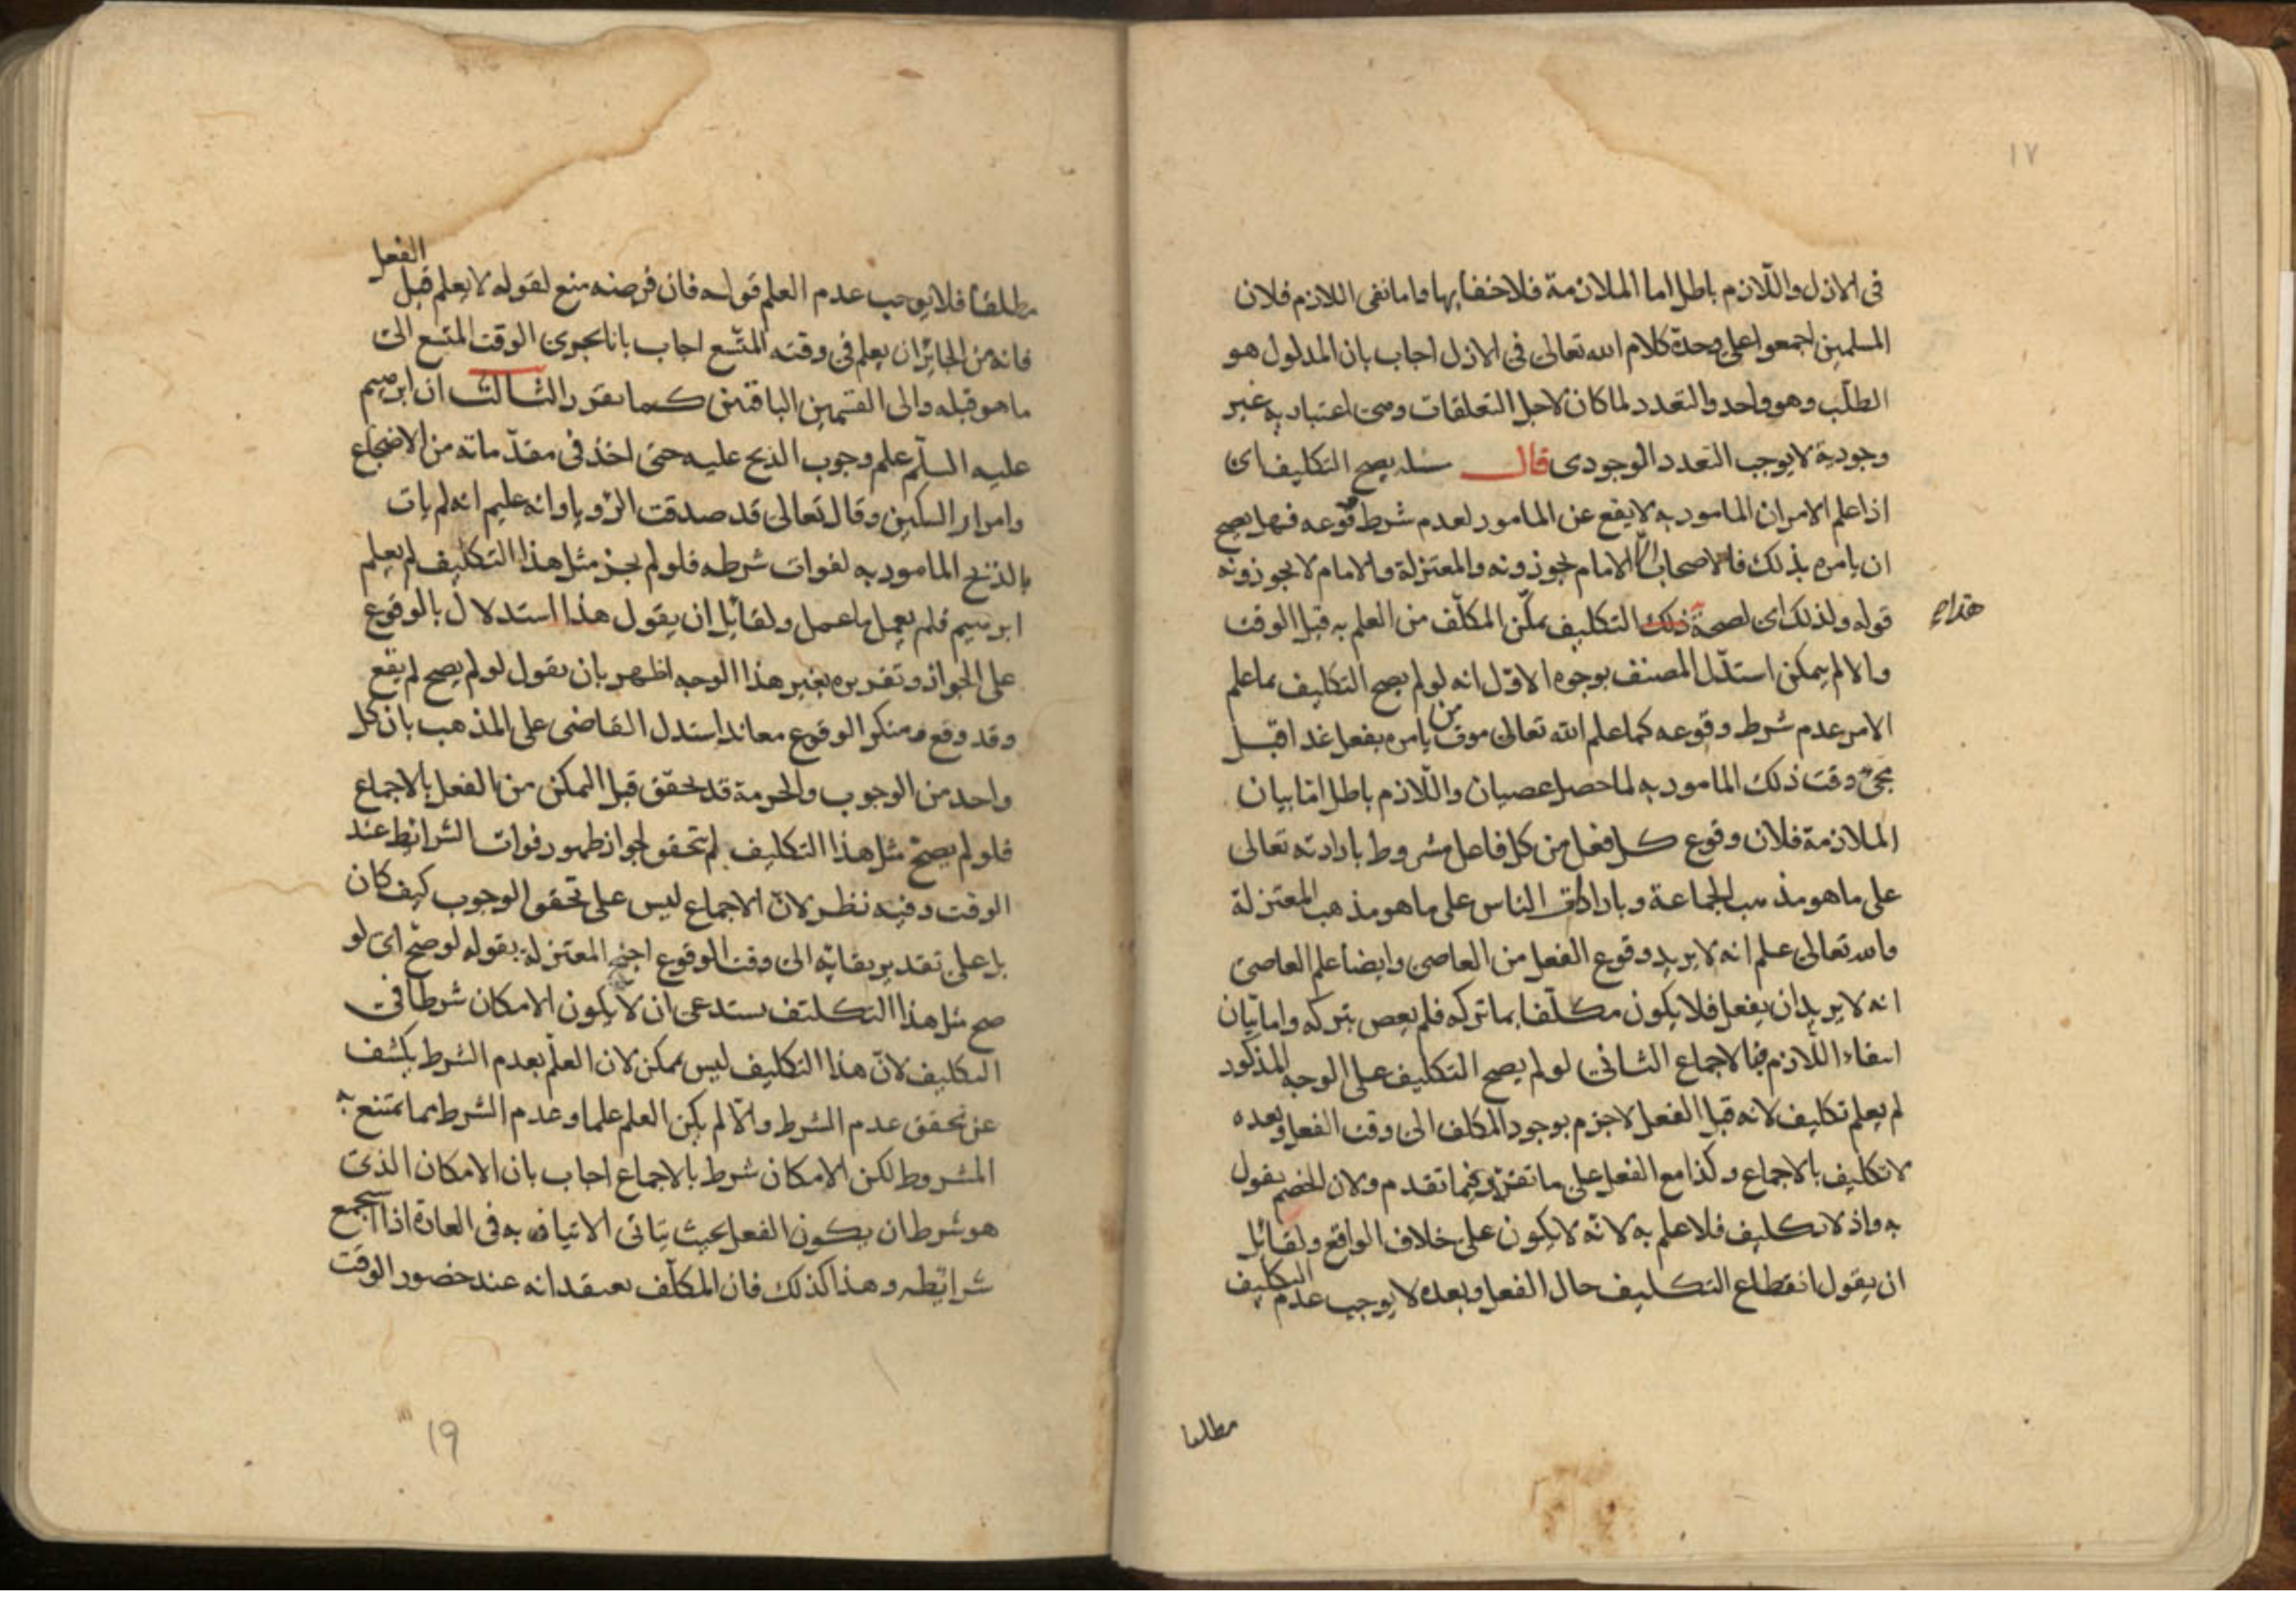 ١٧
فى الازل واللازم باطل اما الملازمة فلاخفا بها واما نفى اللازم فلان
المسلمين اجمعوا على وحدة كلام الله تعالى فى الازل اجاب بان المدلول هو
الطلب وهو واحد والتعدد لما كان لاجل التعلقات وهى اعتبارية غير
وجودية لا يوجب التعدد الوجودى قال مسئلة يصح التكليف اى
اذا علم الامر ان المامور به لا يقع عن المامور لعدم شرط وقوعه فهل يصح
ان يامره بذلك فالاصحاب الا الامام يجوزونه والمعتزلة والامام لا يجوزونه
قوله ولذلك اى لصحة ذلك التكليف يمكن المكلف من العلم به قبل الوقت
هذا
والا لم يمكن استدل المصنف بوجوه الاول انه لو لم يصح التكليف بما علم
الامر عدم شرط وقوعه كما علم الله تعالى موت من يامره بفعل غدا قبل
مجئ وقت ذلك المامور به لما حصل عصيان واللازم باطل اما بيان
الملازمة فلان وقوع كل فعل من كل فاعل مشروط بارادته تعالى
على ما هو مذهب الجماعة وبارادة الناس على ما هو مذهب المعتزلة
والله تعالى علم انه لا يريد وقوع الفعل من العاصى وايضا علم العاصى
انه لا يريد ان يفعل فلا يكون مكلفا بما تركه فلم يعص بتركه واما بيان
انتفاء اللازم فبالاجماع الثانى لو لم يصح التكليف على الوجه المذكور
لم يعلم تكليف لانه قبل الفعل لا جزم بوجود المكلف الى وقت الفعل وبعده
لا تكليف بالاجماع وكذا مع الفعل على ما تقرر فيما تقدم ولان الخصم يقول
به واذ لا تكليف فلا علم به لانه لا يكون على خلاف الواقع ولقائل
ان يقول انقطاع التكليف حال الفعل وبعده لا يوجب عدم التكليف
مطلقا
مطلقا فلا يوجب عدم العلم قوله فان فرضه منع لقوله لا يعلم قبل الفعل
فانه من الجائز ان يعلم فى وقته المتسع اجاب بانا نجرى الوقت المتسع الى
ما هو قبله والى القسمين الباقيين كما تقرر الثالث ان ابرهيم
عليه السلم علم وجوب الذبح عليه حتى اخذ فى مقدماته من الاضجاع
وامرار السكين وقال تعالى قد صدقت الرؤيا وانه عليم انه لم يات
بالذبح المامور به لفوات شرطه فلو لم يجز مثل هذا التكليف لم يعلم
ابرهيم فلم يعمل ما عمل ولقائل ان يقول هذا استدلال بالوقوع
على الجواز وتقريره بغير هذا الوجه اظهر بان يقول لو لم يصح لم يقع
وقد وقع ومنكر الوقوع معاند استدل القاضى على المذهب بان كل
واحد من الوجوب والحرمة قد تحقق قبل التمكن من الفعل بالاجماع
فلو لم يصح مثل هذا التكليف لم تحقق لجواز ظهور فوات الشرائط عند
الوقت وفيه نظر لان الاجماع ليس على تحقق الوجوب كيف كان
بل على تقدير بقائه الى وقت الوقوع احتج المعتزلة بقوله لو صح اى لو
صح مثل هذا التكليف يستدعى ان لا يكون الامكان شرطا فى
التكليف لان هذا التكليف ليس بممكن لان العلم بعدم الشرط يكشف
عن تحقق عدم الشرط والا لم يكن العلم علما وعدم الشرط مما يمتنع به
المشروط لكن الامكان شرط بالاجماع اجاب بان الامكان الذى
هو شرط ان يكون الفعل بحيث يتاتى الاتيان به فى العادة اذا استجمع
شرائطه وهذا كذلك فان المكلف يعتقد انه عند حضور الوقت
19